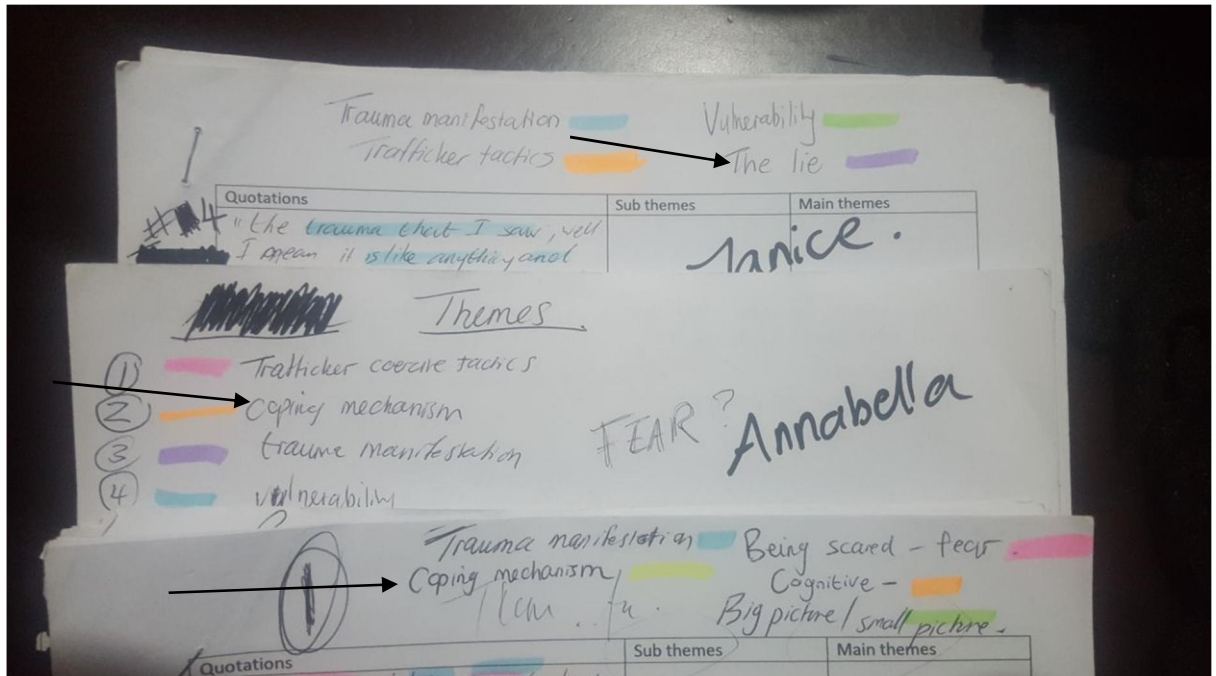 Trauma manifestation Vulnerability
Trafficker tactics The lie
Quotations Sub themes Main themes
#4 "the trauma that I saw, well
I mean it is like anything and
Janice.
Themes
1 Trafficker coercive tactics
2 Coping mechanism
3 trauma manifestation
4 vulnerability
FEAR?
Annabella
1
Trauma manifestation Being scared - fear
Coping mechanism Cognitive -
Big picture / small picture.
Quotations Sub themes Main themes